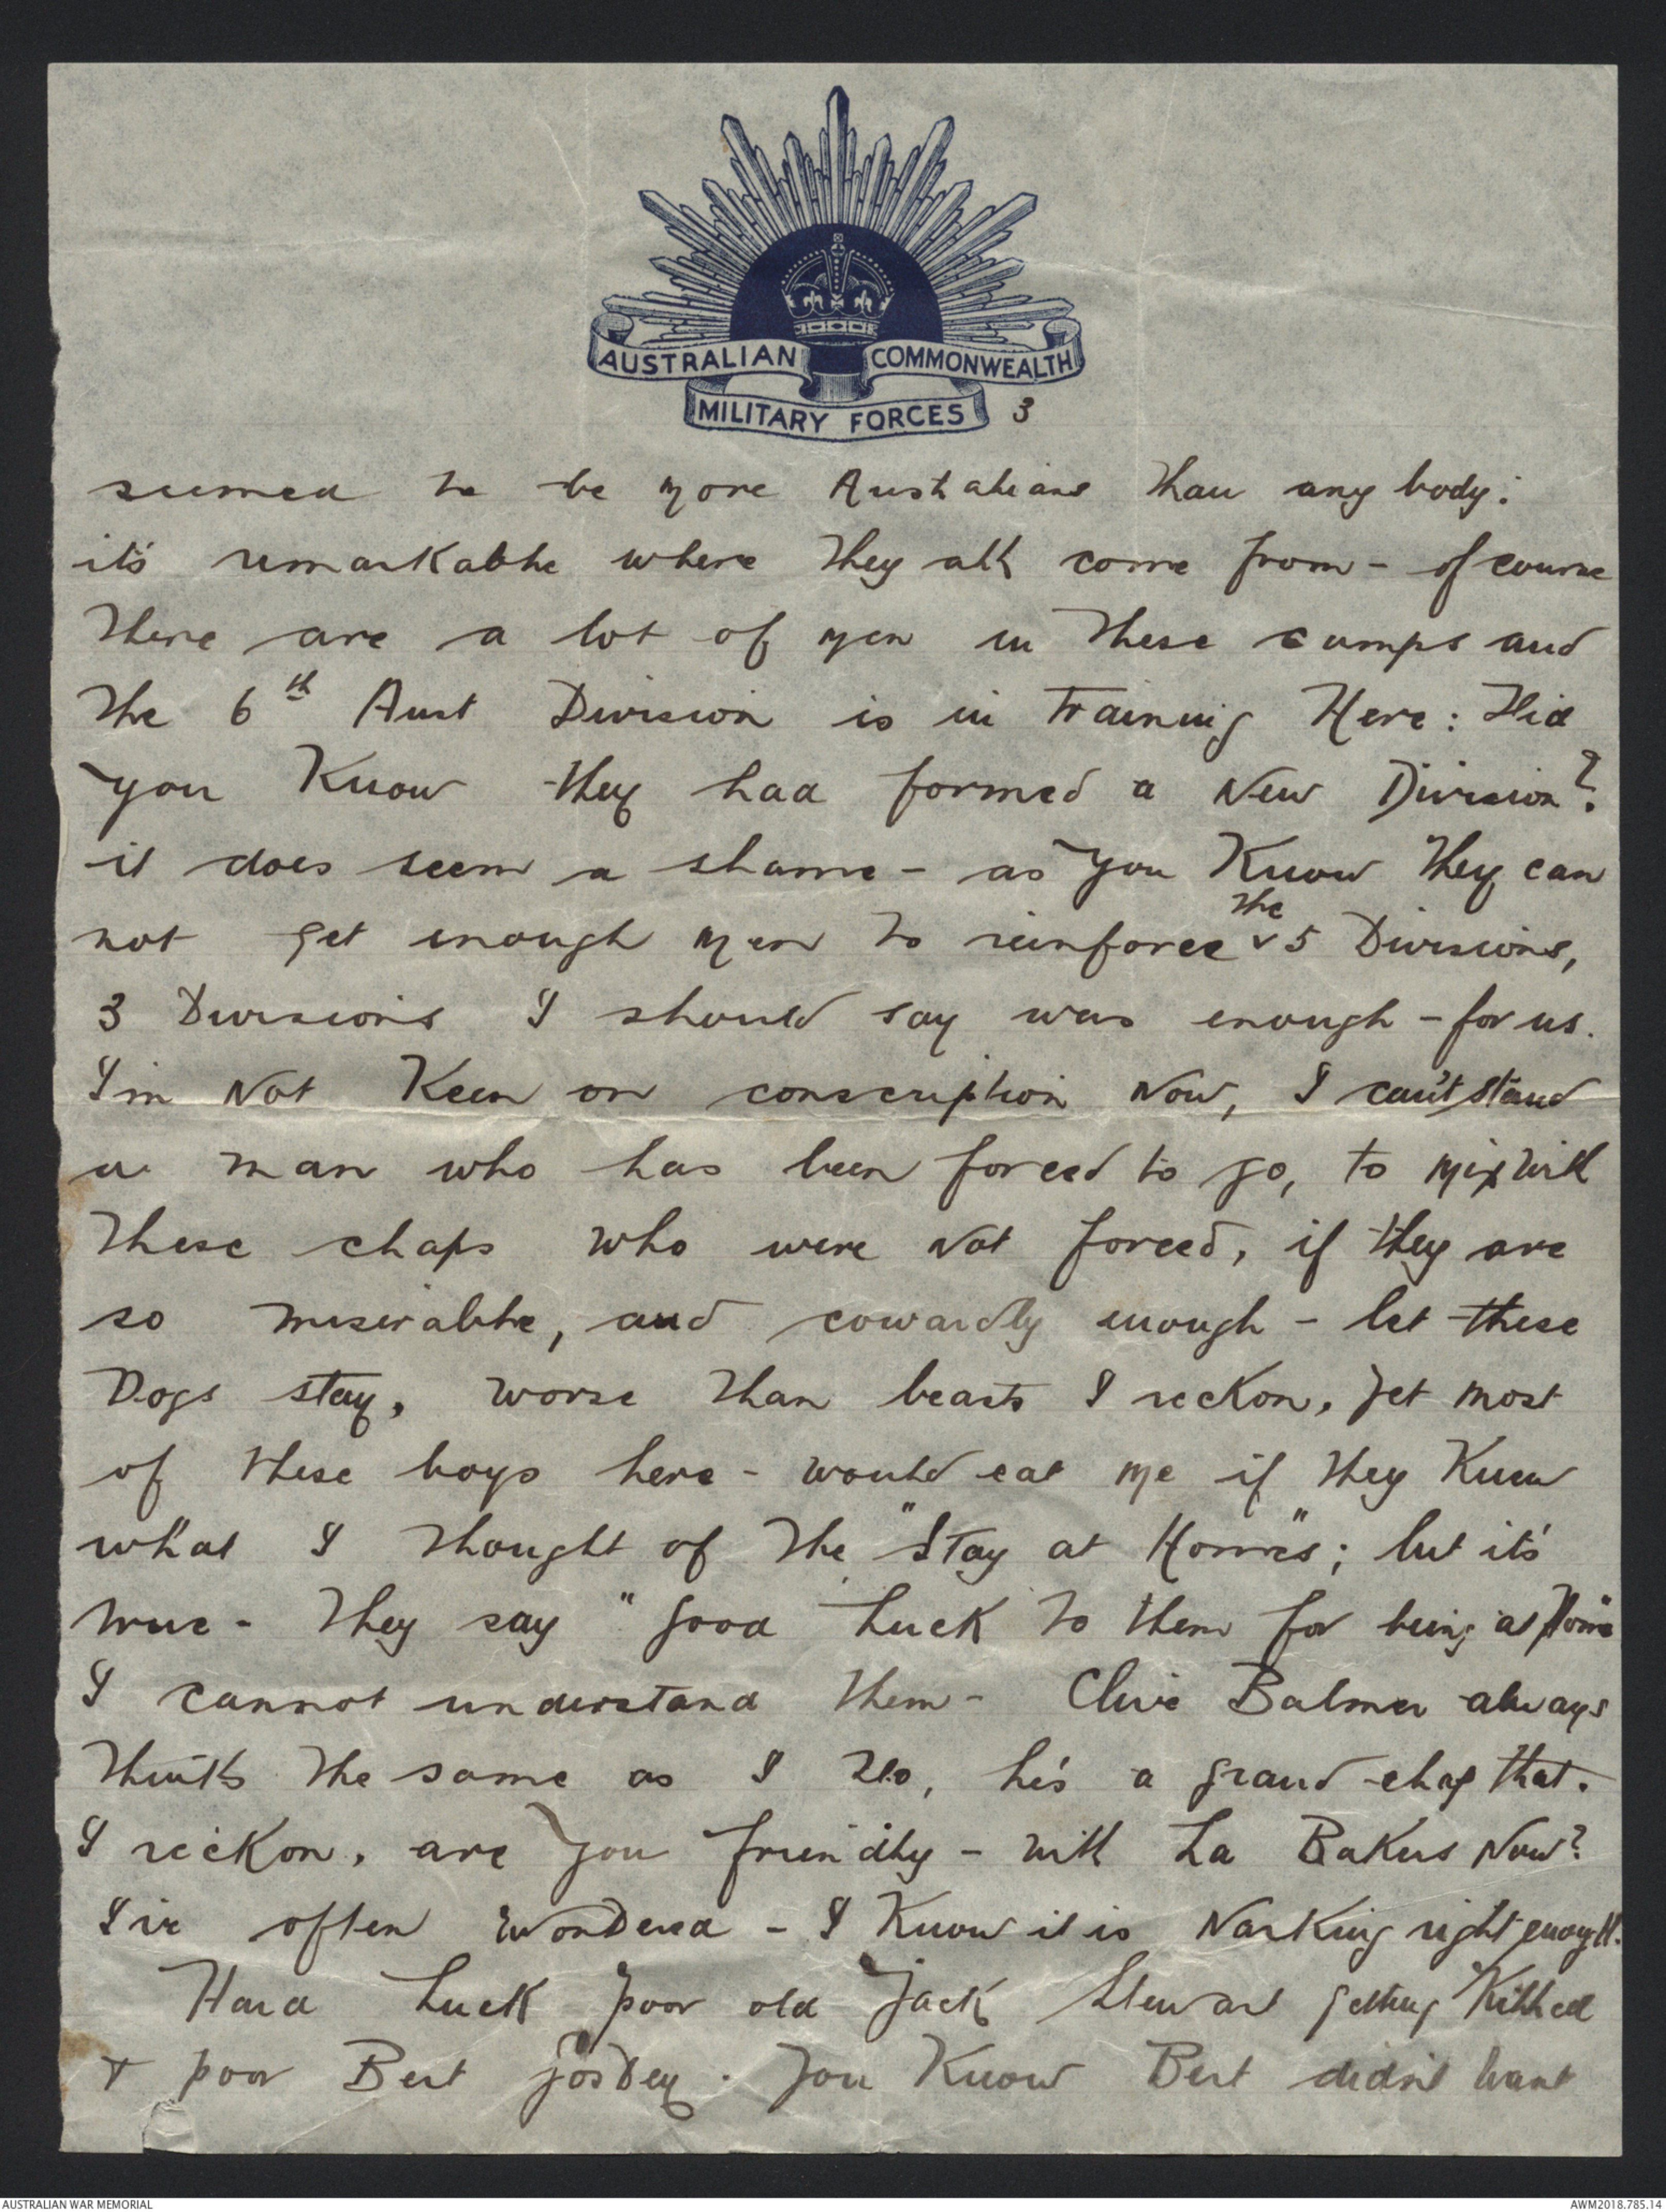 AUSTRALIAN COMMONWEALTH
MILITARY FORCES 3
seemed to be more Australians than any body:
it's remarkable where they all come from - of course
there are a lot of men in these camps and
the 6th Aust Division is in training Here: Did
you Know they had formed a New Division?
it does seem a shame - as you Know they can
not get enough men to reinforce the 5 Divisions,
3 Divisions I should say was enough - for us.
I'm Not Keen on conscription Now, I can't stand
a man who has been forced to go, to mix with
these chaps who were Not forced, if they are
so miserable, and cowardly enough - let these
Dogs stay, worse than beasts I reckon, yet most
of these boys here - would eat me if they Knew
what I thought of the "Stay at Homes"; but it's
true - they say "good luck to them for being at Home"
I cannot understand them - Clive Balmer always
thinks the same as I do, he's a grand chap that.
I reckon, are you friendly - with La Bakers Now?
I've often wondered - I Know it is Narking right enough.
Hard luck poor old Jack Stewart getting Killed
& poor Bert . You Know Bert didn't want
AUSTRALIAN WAR MEMORIAL
AWM2018.785.14